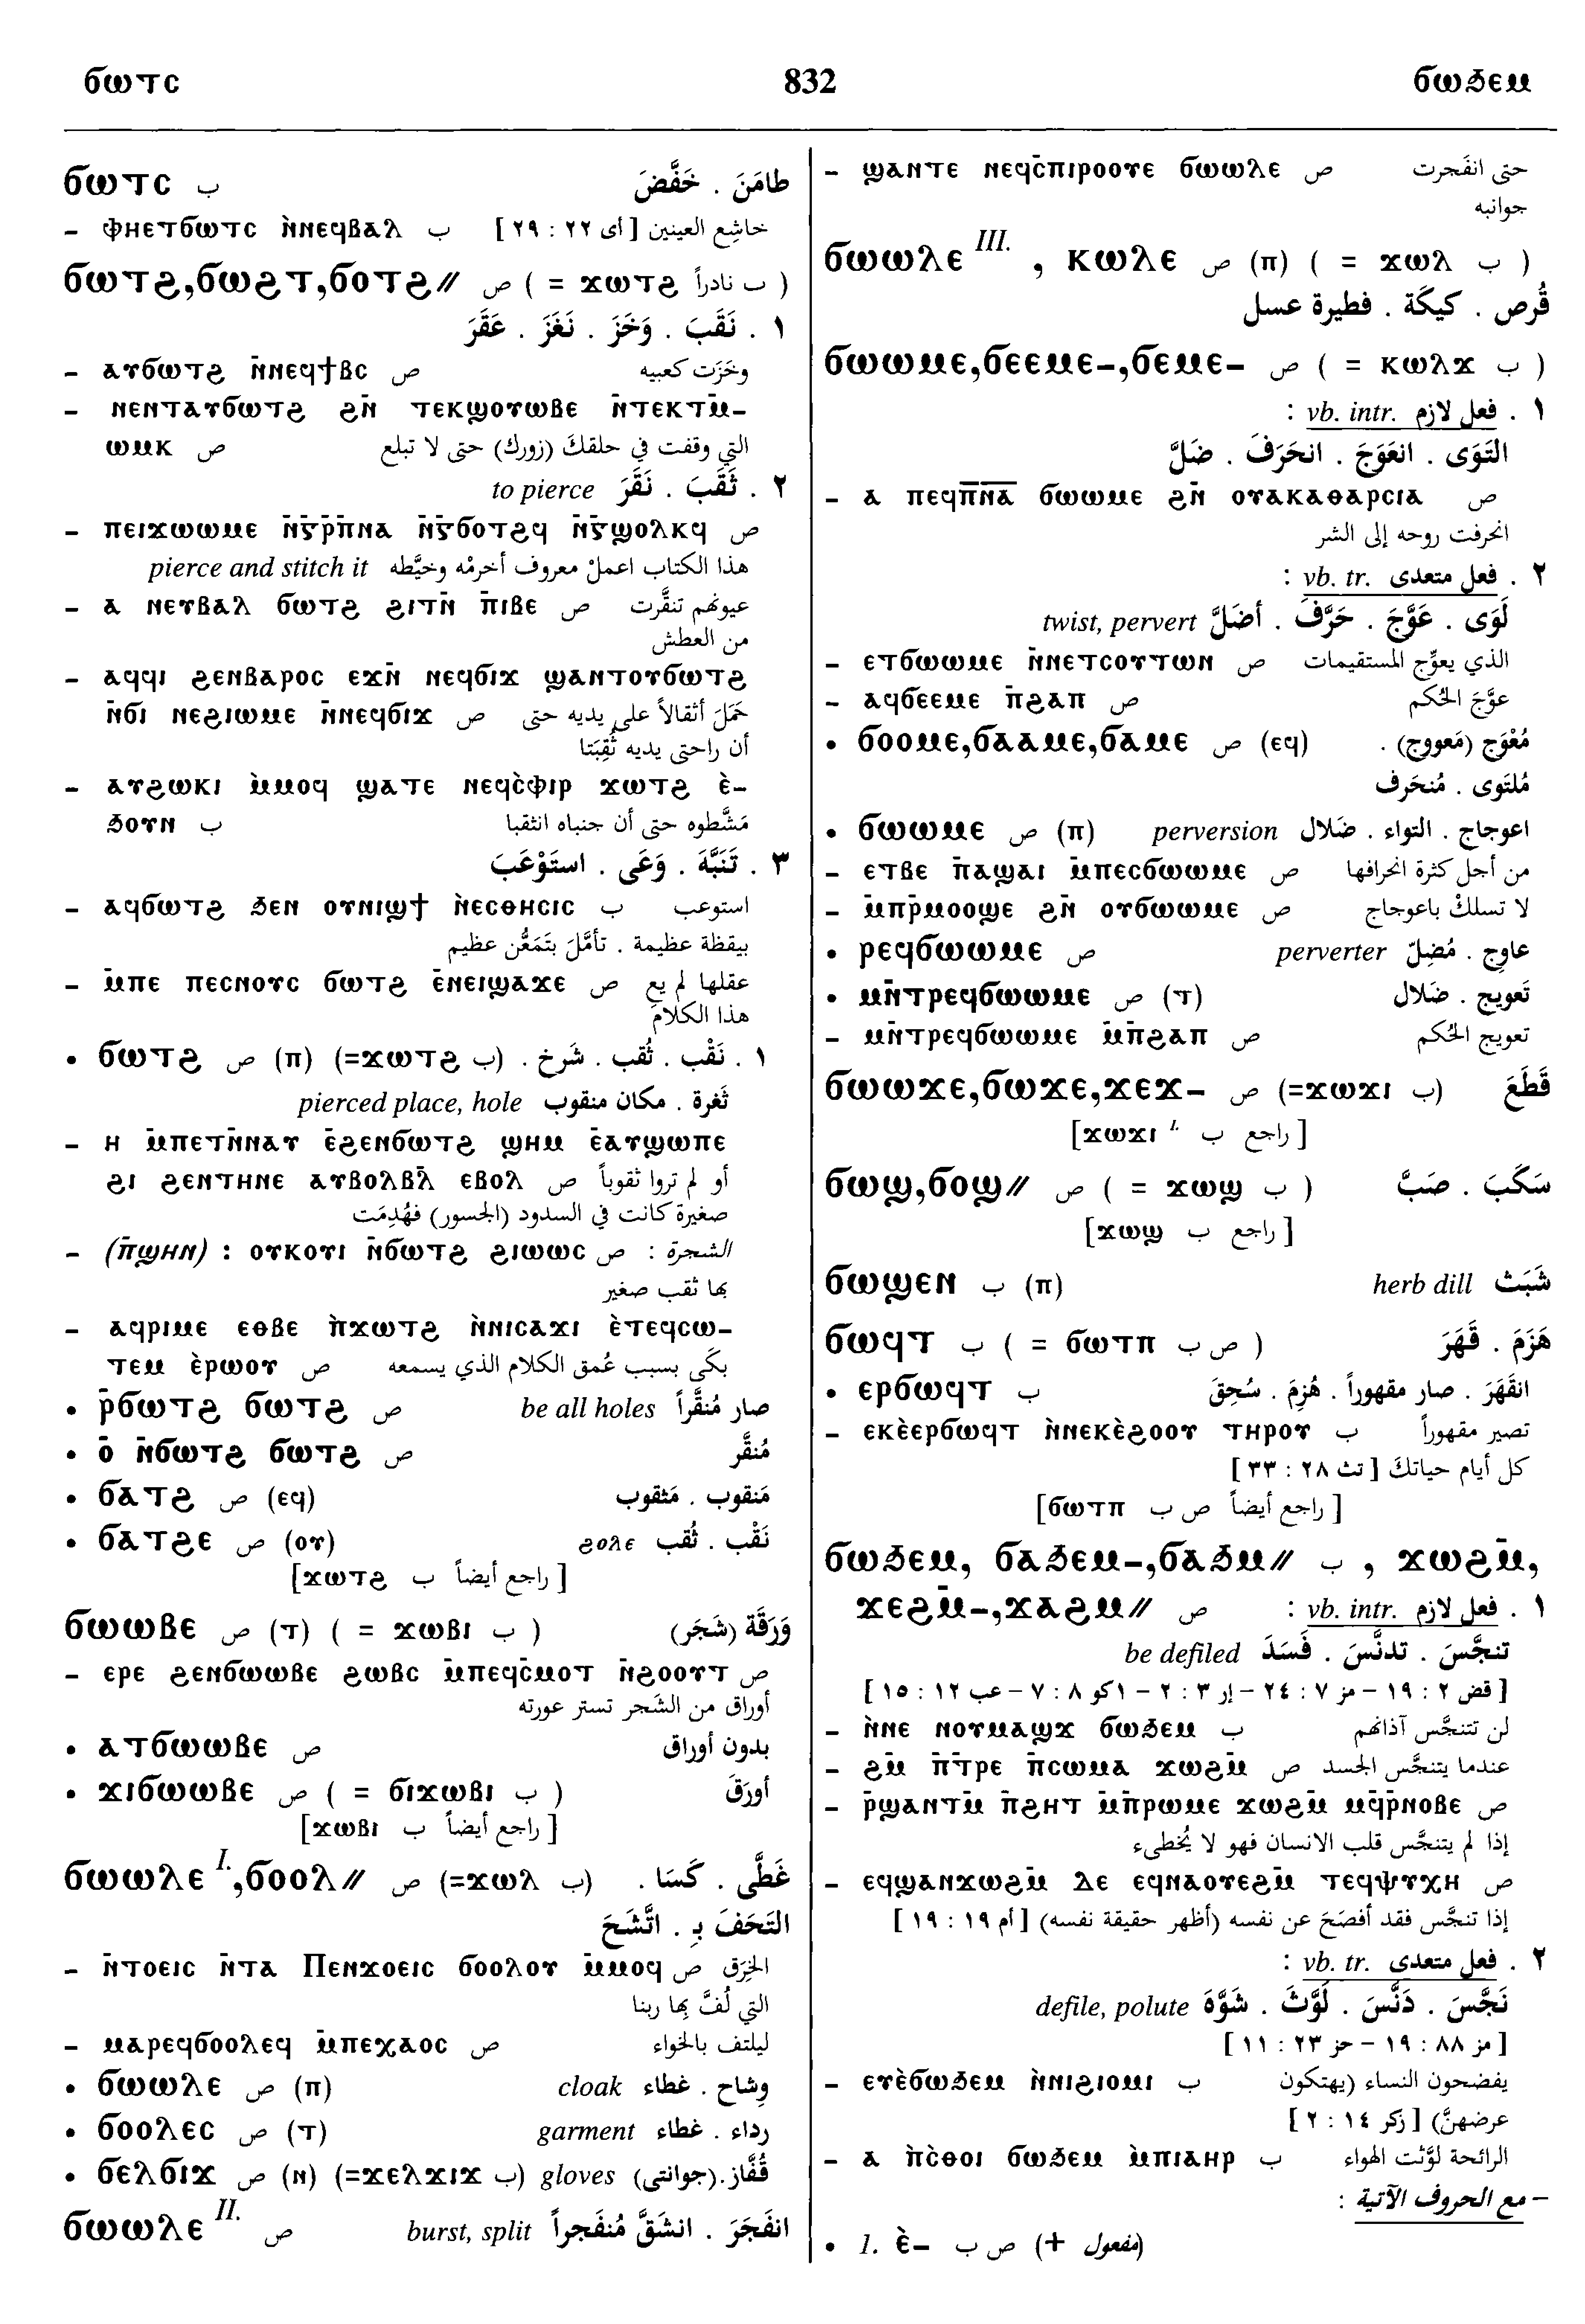 ϭⲱⲧⲥ 832 ϭⲱϧⲉⲙ
ϭⲱⲧⲥ ب طامَنَ . خَفَّضَ
– ⲫⲏⲉⲧϭⲱⲧⲥ ⲛ̀ⲛⲉϥⲃⲁⲗ ب خاشِع العينين [ أى ٢٢ : ٢٩ ]
ϭⲱⲧϩ,ϭⲱϩⲧ,ϭⲟⲧϩ// ص ( = ϫⲱⲧϩ ب نادراً )
١ . نَقَبَ . وَخَزَ . نَغَزَ . عَقَرَ
– ⲁⲩϭⲱⲧϩ ⲛ̄ⲛⲉϥϯⲃⲥ ص وخَزَت كعبيه
– ⲛⲉⲛⲧⲁⲩϭⲱⲧϩ ϩⲛ̄ ⲧⲉⲕϣⲟⲩⲱⲃⲉ ⲛ̄ⲧⲉⲕⲧⲙ̄-
ⲱⲙⲕ ص التي وقفت في حلقكَ (زورك) حتى لا تبلع
٢ . ثَقَبَ . نَقَرَ to pierce
– ⲡⲉⲓϫⲱⲱⲙⲉ ⲛ̄ⲅⲣ̄ⲡ̄ⲛⲁ ⲛ̄ⲅϭⲟⲧϩϥ ⲛ̄ⲅϣⲟⲗⲕϥ ص
هذا الكتاب اعملْ معروف أخرمْه وخيَّطه pierce and stitch it
– ⲁ ⲛⲉⲩⲃⲁⲗ ϭⲱⲧϩ ϩⲓⲧⲛ̄ ⲡ̄ⲓⲃⲉ ص عيونهم تنقَّرت
من العطش
– ⲁϥϥⲓ ϩⲉⲛⲃⲁⲣⲟⲥ ⲉϫⲛ̄ ⲛⲉϥϭⲓϫ ϣⲁⲛⲧⲟⲩϭⲱⲧϩ
ⲛ̄ϭⲓ ⲛⲉϩⲓⲱⲙⲉ ⲛ̄ⲛⲉϥϭⲓϫ ص حَمَلَ أثقالاً على يديه حتى
أن راحتى يديه ثُقِبَتا
– ⲁⲩϩⲱⲕⲓ ⲙ̀ⲙⲟϥ ϣⲁⲧⲉ ⲛⲉϥⲥ̀ⲫⲓⲣ ϫⲱⲧϩ ⲉ̀-
ϧⲟⲩⲛ ب مَشَّطوه حتى أن جنباه انثقبا
٣ . تَنَبَّهَ . وَعَى . استَوْعَبَ
– ⲁϥϭⲱⲧϩ ϧⲉⲛ ⲟⲩⲛⲓϣϯ ⲛ̀ⲉⲥⲑⲏⲥⲓⲥ ب استوعب
بيقظة عظيمة . تأمَّلَ بتَمَعُّن عظيم
– ⲙ̄ⲡⲉ ⲡⲉⲥⲛⲟⲩⲥ ϭⲱⲧϩ ⲉ̄ⲛⲉⲓϣⲁϫⲉ ص عقلها لم يعِ
هذا الكلامَ
• ϭⲱⲧϩ ص (ⲡ) (=ϫⲱⲧϩ ب) . ١ . نَقْب . ثُقب . شَرخ
ثغرة . مكان منقوب pierced place, hole
– ⲏ ⲙ̄ⲡⲉⲧⲛ̄ⲛⲁⲩ ⲉ̄ϩⲉⲛϭⲱⲧϩ ϣⲏⲙ ⲉ̄ⲁⲩϣⲱⲡⲉ
ϩⲓ ϩⲉⲛⲧⲏⲛⲉ ⲁⲩⲃⲟⲗⲃⲗ̄ ⲉⲃⲟⲗ ص أو لم تروا ثقوباً
صغيرة كانت في السدود (الجسور) فهُدِمَت
– (ⲡ̄ϣⲏⲛ) : ⲟⲩⲕⲟⲩⲓ ⲛ̄ϭⲱⲧϩ ϩⲓⲱⲱⲥ ص الشجرة :
بها ثقب صغير
– ⲁϥⲣⲓⲙⲉ ⲉⲑⲃⲉ ⲡ̀ϫⲱⲧϩ ⲛ̀ⲛⲓⲥⲁϫⲓ ⲉ̀ⲧⲉϥⲥⲱ-
ⲧⲉⲙ ⲉ̀ⲣⲱⲟⲩ ص بكَى بسبب عُمق الكلام الذي يسمعه
• ⲣ̄ϭⲱⲧϩ ϭⲱⲧϩ ص صار مُنقَّراً be all holes
• ⲟ̄ ⲛ̄ϭⲱⲧϩ ϭⲱⲧϩ ص مُنقَّر
• ϭⲁⲧϩ ص (ⲉϥ) مَنقوب . مَثقوب
• ϭⲁⲧϩⲉ ص (ⲟⲩ) نَقْب . ثُقب ϩⲟⲗⲉ
[ راجع أيضاً ب ϫⲱⲧϩ]
ϭⲱⲱⲃⲉ ص (ⲧ) ( = ϫⲱⲃⲓ ب ) وَرَقَة (شَجَر)
– ⲉⲣⲉ ϩⲉⲛϭⲱⲱⲃⲉ ϩⲱⲃⲥ ⲙ̄ⲡⲉϥⲥ̄ⲙⲟⲧ ⲛ̄ϩⲟⲟⲩⲧ ص
أوراق من الشجر تستر عورته
• ⲁⲧϭⲱⲱⲃⲉ ص بدون أوراق
• ϫⲓϭⲱⲱⲃⲉ ص ( = ϭⲓϫⲱⲃⲓ ب ) أورَقَ
[ راجع أيضاً ب ϫⲱⲃⲓ]
ϭⲱⲱⲗⲉ I.,ϭⲟⲟⲗ// ص (=ϫⲱⲗ ب) غَطَّى . كَسَا .
التَحَفَ بِـ . اتَّشَحَ
– ⲛ̄ⲧⲟⲉⲓⲥ ⲛ̄ⲧⲁ Ⲡⲉⲛϫⲟⲉⲓⲥ ϭⲟⲟⲗⲟⲩ ⲙ̄ⲙⲟϥ ص الخِرَق
التي لُفَّ بها ربنا
– ⲙⲁⲣⲉϥϭⲟⲟⲗⲉϥ ⲙ̄ⲡⲉⲭⲁⲟⲥ ص ليلتف بالخواء
• ϭⲱⲱⲗⲉ ص (ⲡ) وِشاح . غطاء cloak
• ϭⲟⲟⲗⲉⲥ ص (ⲧ) رداء . غطاء garment
• ϭⲉⲗϭⲓϫ ص (ⲛ) (=ϫⲉⲗϫⲓϫ ب) قُفَّاز.(جوانتى) gloves
ϭⲱⲱⲗⲉ II. ص انفَجَرَ . انشَقَّ مُنفَجراً burst, split
– ϣⲁⲛⲧⲉ ⲛⲉϥⲥ̄ⲡⲓⲣⲟⲟⲩⲉ ϭⲱⲱⲗⲉ ص حتى انفَجرت
جوانبه
ϭⲱⲱⲗⲉ III. , ⲕⲱⲗⲉ ص (ⲡ) ( = ϫⲱⲗ ب )
قُرص . كيكَة . فطيرة عسل
ϭⲱⲱⲙⲉ,ϭⲉⲉⲙⲉ-,ϭⲉⲙⲉ- ص ( = ⲕⲱⲗϫ ب )
١ . فعل لازم vb. intr. :
التَوَى . انعَوَجَ . انحَرَفَ . ضَلَّ
– ⲁ ⲡⲉϥⲡ̅ⲛ̅ⲁ̅ ϭⲱⲱⲙⲉ ϩⲛ̄ ⲟⲩⲁⲕⲁⲑⲁⲣⲥⲓⲁ ص
انحرفت روحه إلى الشر
٢ . فعل متعدى vb. tr. :
لَوَى . عَوَّجَ . حَرَّفَ . أضَلَّ twist, pervert
– ⲉⲧϭⲱⲱⲙⲉ ⲛ̄ⲛⲉⲧⲥⲟⲩⲧⲱⲛ ص الذي يعوِّج المستقيمات
– ⲁϥϭⲉⲉⲙⲉ ⲡ̄ϩⲁⲡ ص عوَّجَ الحُكم
• ϭⲟⲟⲙⲉ,ϭⲁⲁⲙⲉ,ϭⲁⲙⲉ ص (ⲉϥ) مُعْوَج (مَعووج) .
مُلتَوى . مُنحَرِف
• ϭⲱⲱⲙⲉ ص (ⲡ) اعوجاج . التواء . ضَلال perversion
– ⲉⲧⲃⲉ ⲡ̄ⲁϣⲁⲓ ⲙ̄ⲡⲉⲥϭⲱⲱⲙⲉ ص من أجل كثرة انحرافها
– ⲙ̄ⲡⲣ̄ⲙⲟⲟϣⲉ ϩⲛ̄ ⲟⲩϭⲱⲱⲙⲉ ص لا تسلكْ باعوجاج
• ⲣⲉϥϭⲱⲱⲙⲉ ص عاوِج . مُضِلّ perverter
• ⲙⲛ̄ⲧⲣⲉϥϭⲱⲱⲙⲉ ص (ⲧ) تَعويج . ضَلال
– ⲙⲛ̄ⲧⲣⲉϥϭⲱⲱⲙⲉ ⲙ̄ⲡ̄ϩⲁⲡ ص تعويج الحُكم
ϭⲱⲱϫⲉ,ϭⲱϫⲉ,ϫⲉϫ- ص (=ϫⲱϫⲓ ب) قَطَعَ
[ راجع ب ϫⲱϫⲓ I.]
ϭⲱϣ,ϭⲟϣ// ص ( = ϫⲱϣ ب ) سَكَبَ . صَبَّ
[ راجع ب ϫⲱϣ]
ϭⲱϣⲉⲛ ب (ⲡ) شَبَث herb dill
ϭⲱϥⲧ ب ( = ϭⲱⲧⲡ ص ب ) هَزَمَ . قَهَرَ
• ⲉⲣϭⲱϥⲧ ب انقَهَرَ . صار مقهوراً . هُزِمَ . سُحِقَ
– ⲉⲕⲉ̀ⲉⲣϭⲱϥⲧ ⲛ̀ⲛⲉⲕⲉ̀ϩⲟⲟⲩ ⲧⲏⲣⲟⲩ ب تصير مقهوراً
كل أيام حياتكَ [ تث ٢٨ : ٣٣ ]
[ راجع أيضاً ص ب ϭⲱⲧⲡ]
ϭⲱϧⲉⲙ, ϭⲁϧⲉⲙ-,ϭⲁϧⲙ// ب , ϫⲱϩⲙ̄,
ϫⲉϩⲙ̄-,ϫⲁϩⲙ// ص ١ . فعل لازم vb. intr. :
تنجَّسَ . تدنَّسَ . فَسَدَ be defiled
[ قض ٢ : ١٩ – مز ٧ : ٢٤ – إر ٣ : ٢ – ١كو ٨ : ٧ – عب ١٢ : ١٥ ]
– ⲛ̀ⲛⲉ ⲛⲟⲩⲙⲁϣϫ ϭⲱϧⲉⲙ ب لن تتنجَّس آذانهم
– ϩⲙ̄ ⲡ̄ⲧⲣⲉ ⲡ̄ⲥⲱⲙⲁ ϫⲱϩⲙ̄ ص عندما يتنجَّس الجسد
– ⲣ̄ϣⲁⲛⲧⲙ̄ ⲡ̄ϩⲏⲧ ⲙ̄ⲡ̄ⲣⲱⲙⲉ ϫⲱϩⲙ̄ ⲙϥ̄ⲣ̄ⲛⲟⲃⲉ ص
إذا لم يتنجَّس قلب الانسان فهو لا يُخطىء
– ⲉϥϣⲁⲛϫⲱϩⲙ̄ ⲇⲉ ⲉϥⲛⲁⲟⲩⲉϩⲙ̄ ⲧⲉϥⲯⲩⲭⲏ ص
إذا تنجَّس فقد أفصَحَ عن نفسه (أظهر حقيقة نفسه) [ أم ١٩ : ١٩ ]
٢ . فعل متعدى vb. tr. :
نَجَّسَ . دَنَّسَ . لَوَّثَ . شَوَّهَ defile, polute
[ مز ٨٨ : ١٩ – حز ٢٣ : ١١ ]
– ⲉⲩⲉ̀ϭⲱϧⲉⲙ ⲛ̀ⲛⲓϩⲓⲟⲙⲓ ب يفضحون النساء (يهتكون
عرضهنَّ) [ زك ١٤ : ٢ ]
– ⲁ ⲡ̀ⲥ̀ⲑⲟⲓ ϭⲱϧⲉⲙ ⲙ̀ⲡⲓⲁⲏⲣ ب الرائحة لوَّثت الهواء
– مع الحروف الآتية :
• 1. ⲉ̀- ص ب (+ مفعول)